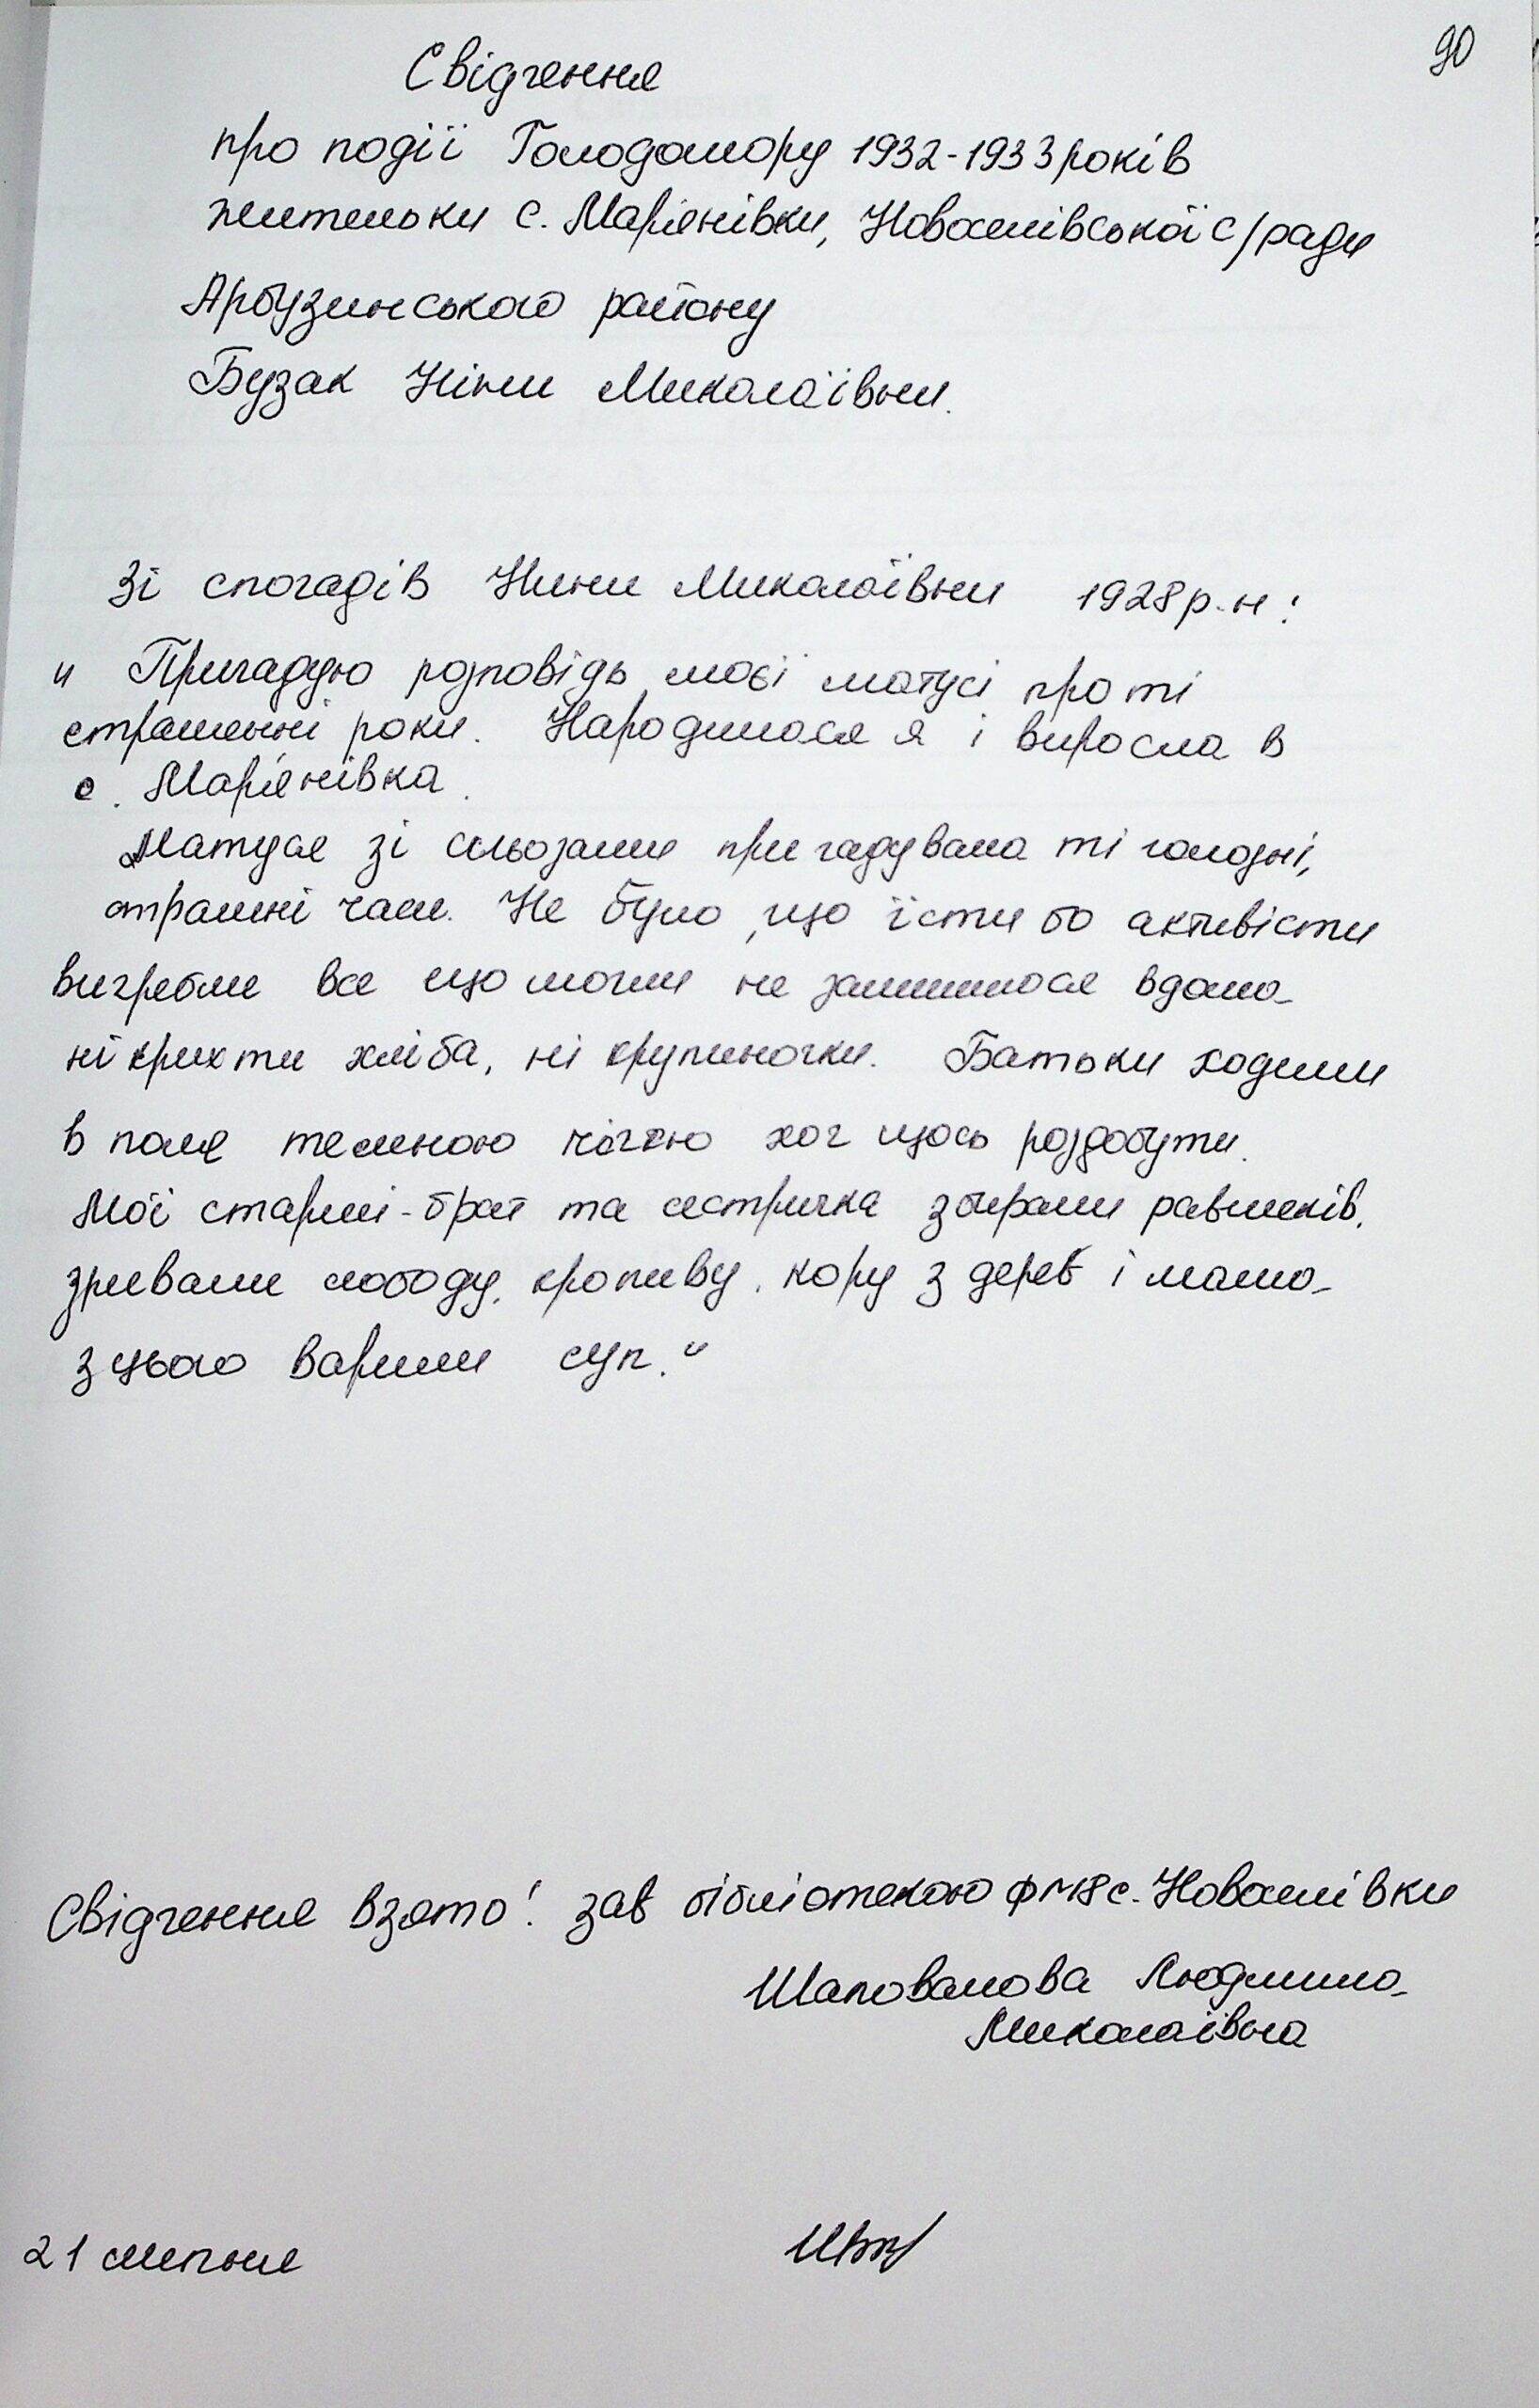 90
Свідчення
про події Голодомору 1932-1933 років
жительки с. Мар'янівки, Новоселівської с/ради
Арбузинського району
Бузак Ніни Миколаївни.
Зі спогадів Нини Миколаївни 1928 р.н:
" Пригадую розповідь моєї матусі про ті
страшенні роки. Народилася я і виросла в
с. Мар'янівка.
Матуся зі сльозами пригадувала ті голодні,
страшні часи. Не було, що їсти бо активісти
вигребли все що могли не залишилося вдома
ні крихти хліба, ні крупиночки. Батьки ходили
в поле темною нічкою хоч щось роздобути.
Мої старші - брат та сестричка збирали равликів.
зривали лободу, кропиву, кору з дерев і мама
з цього варили суп."
Свідчення взято: зав бібліотекою ф №18 с. Новоселівки
Шаповалова Людмила
Миколаївна
21 липня